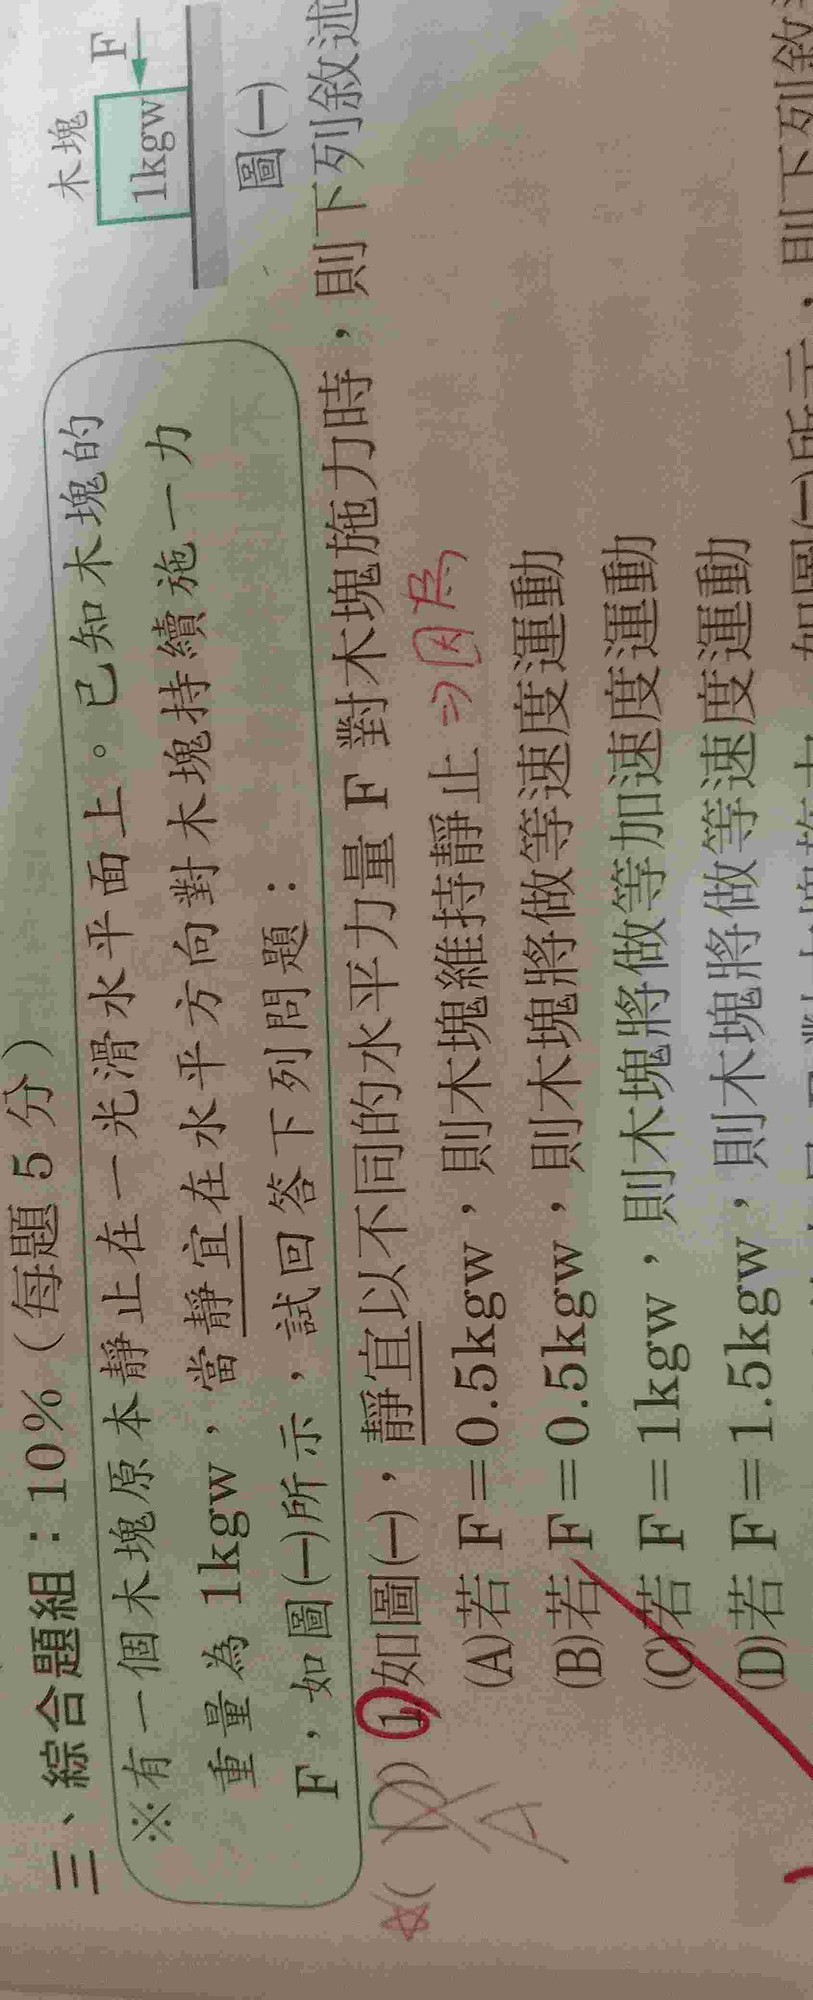 三、綜合題組：10%（每題5分）
※有一個木塊原本靜止在一光滑水平面上。已知木塊的
重量為 1kgw，當靜宜在水平方向對木塊持續施一力
F，如圖(一)所示，試回答下列問題：
木塊
F
1kgw
圖(一)
( D ) 1.如圖(一)，靜宜以不同的水平力量 F 對木塊施力時，則下列敘述
A
(A)若 F＝0.5kgw，則木塊維持靜止 ⇒因為
(B)若 F＝0.5kgw，則木塊將做等速度運動
(C)若 F＝1kgw，則木塊將做等加速度運動
(D)若 F＝1.5kgw，則木塊將做等速度運動
如圖(二)所示，則下列敘